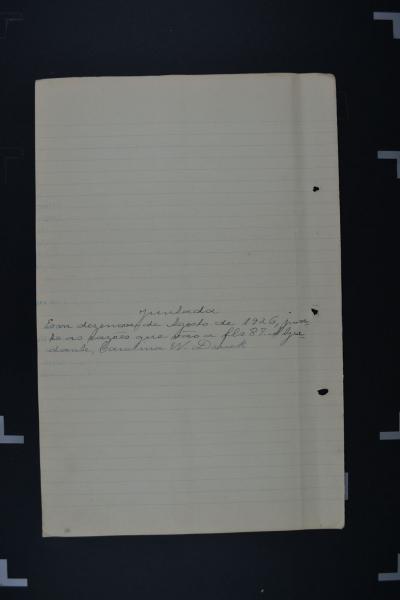 Juntada
Em dezenove de Agosto de 1926, jun-
to as razoes que vão a fls 87. Aju-
dante, Carolina W.